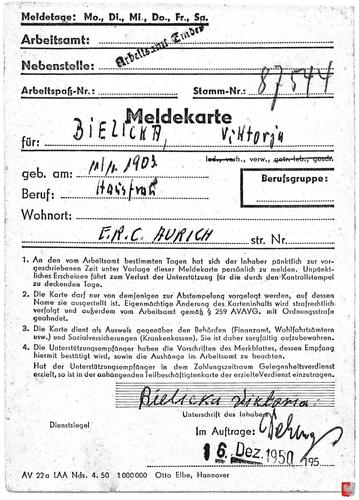 Meldetage: Mo., Di., Mi., Do., Fr., Sa.
Arbeitsamt: Arbeitsamt Emden
Nebenstelle:
Arbeitspaß-Nr.: Stamm-Nr.: 87544
Meldekarte
für: BIELICKA, Viktorja
led., verh., verw., getr. leb., gesch.
geb. am: 1903
Beruf: Hausfrau
Berufsgruppe:
Wohnort:
E.R.C. AURICH str. Nr.
1. An den vom Arbeitsamt bestimmten Tagen hat sich der Inhaber pünktlich zur vor-
geschriebenen Zeit unter Vorlage dieser Meldekarte persönlich zu melden. Unpünkt-
liches Erscheinen führt zum Verlust der Unterstützung für die durch den Kontrollstempel
zu deckenden Tage.
2. Die Karte darf nur von demjenigen zur Abstempelung vorgelegt werden, auf dessen
Name sie ausgestellt ist. Eigenmächtige Änderung des Karteninhalts wird strafrechtlich
verfolgt und außerdem vom Arbeitsamt gemäß § 259 AVAVG. mit Ordnungsstrafe
geahndet.
3. Die Karte dient als Ausweis gegenüber den Behörden (Finanzamt, Wohlfahrtsämtern
usw.) und Sozialversicherungen (Krankenkassen). Sie ist daher sorgfältig aufzubewahren.
4. Die Unterstützungsempfänger haben die Vorschriften des Merkblattes, dessen Empfang
hiermit bestätigt wird, sowie die Aushänge im Arbeitsamt zu beachten.
Hat der Unterstützungsempfänger im Zahlungszeitraum Gelegenheitsverdienst
erzielt, so ist in der anhängenden Teilbeschäftigtenkarte der erzielte Verdienst einzutragen.
Bielicka Viktoria
Unterschrift des Inhabers
Dienstsiegel
Im Auftrage:
16. Dez. 1950 195
AV 22a LAA Nds. 4. 50 1000000 Otto Elbe, Hannover